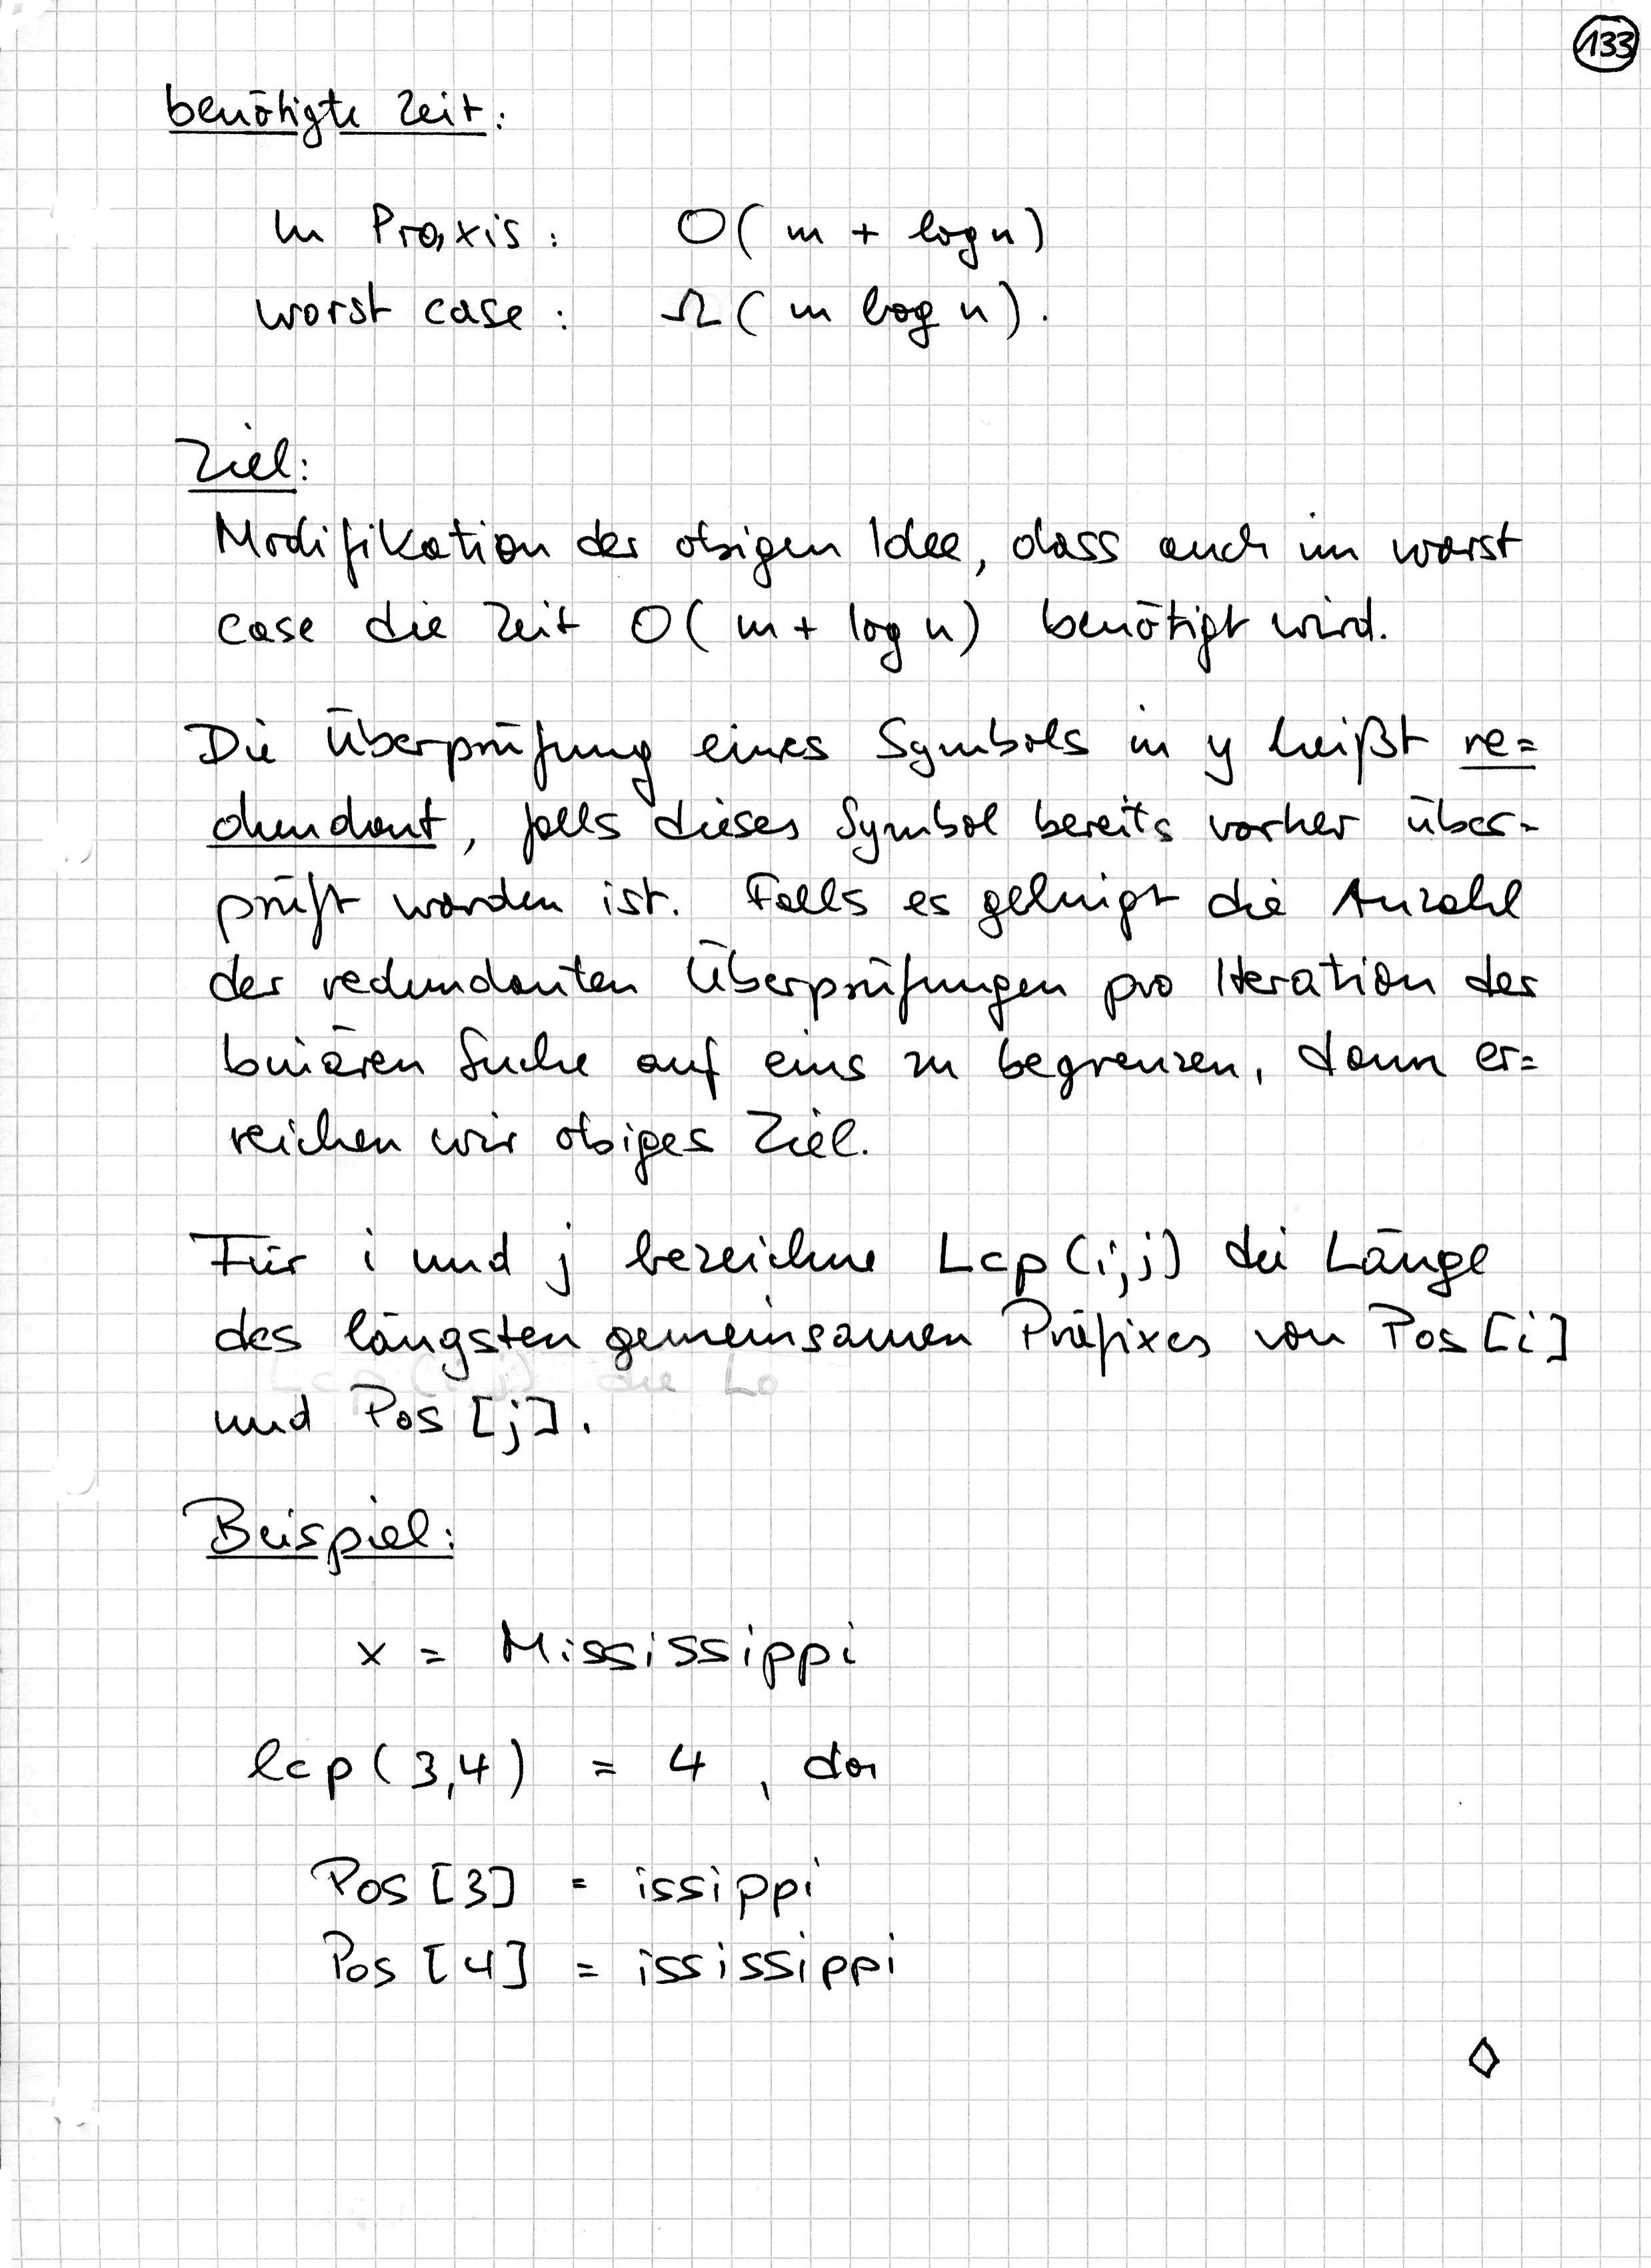 133
benötigte Zeit:
In Praxis: O(m + log n)
worst case: Ω(m log n).
Ziel:
Modifikation der obigen Idee, dass auch im worst
case die Zeit O(m + log n) benötigt wird.
Die Überprüfung eines Symbols in y heißt re=
dundant, falls dieses Symbol bereits vorher über-
prüft worden ist. Falls es gelingt die Anzahl
der redundanten Überprüfungen pro Iteration der
binären Suche auf eins zu begrenzen, dann er=
reichen wir obiges Ziel.
Für i und j bezeichne Lcp(i,j) die Länge
des längsten gemeinsamen Präfixes von Pos[i]
und Pos[j].
Beispiel:
x = Mississippi
lcp(3,4) = 4, da
Pos[3] = issippi
Pos[4] = ississippi
◇